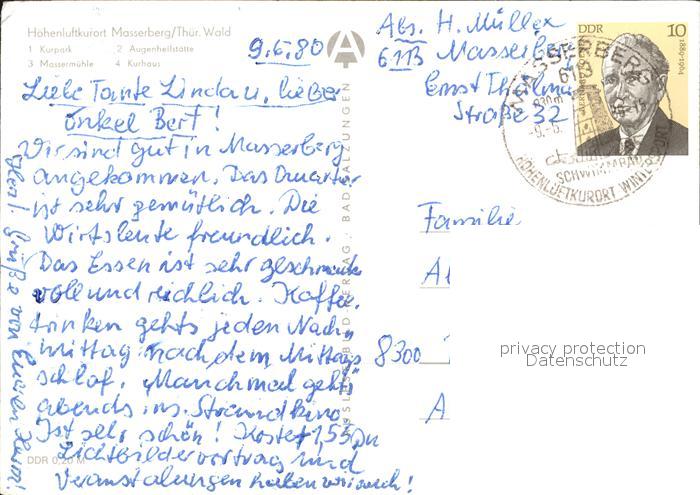 Höhenluftkurort Masserberg/Thür. Wald
1 Kurpark 2 Augenheilstätte
3 Massermühle 4 Kurhaus
9.6.80
Liebe Tante Linda u. lieber
Onkel Bert!
Wir sind gut in Masserberg
angekommen. Das Quartier
ist sehr gemütlich. Die
Wirtsleute freundlich.
Das Essen ist sehr geschmack
voll und reichlich. Kaffee
trinken gehts jeden Nach
mittag nach dem Mittags
schlaf. Manchmal gehts
abends ins Strandkino
Ist sehr schön! Kostet 1,55
Lichtbildervortrag und
Veranstaltungen haben wir auch!
Herzl. Grüße von Eueren
DDR 0,20 M
BILD VERLAG · BAD SALZUNGEN
Abs. H. Müller
6113 Masserberg
Ernst Thälmann
Straße 32
DDR 10
1889-1904
MASSERBERG
6113
SCHWIMMBAD
HÖHENLUFTKURORT WINTERSPORT
Familie
8300
A
privacy protection
Datenschutz